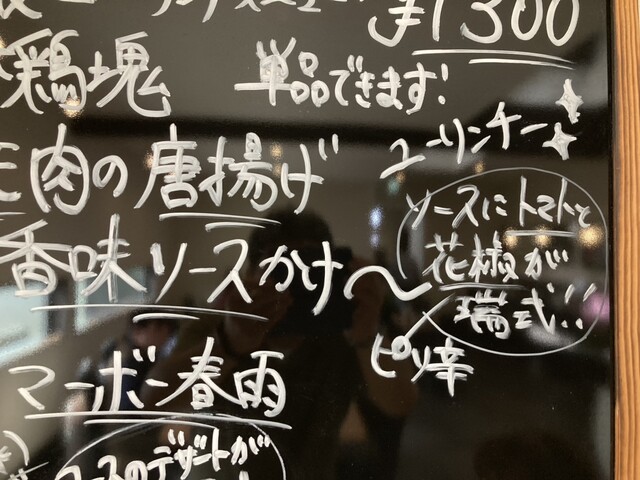 ¥1300
鶏塊 単品できます!
ユーリンチー
肉の唐揚げ
香味ソースかけ〜
ソースにトマトと
花椒が
瑞式!!
ピリ辛
マーボー春雨
コースのデザートが